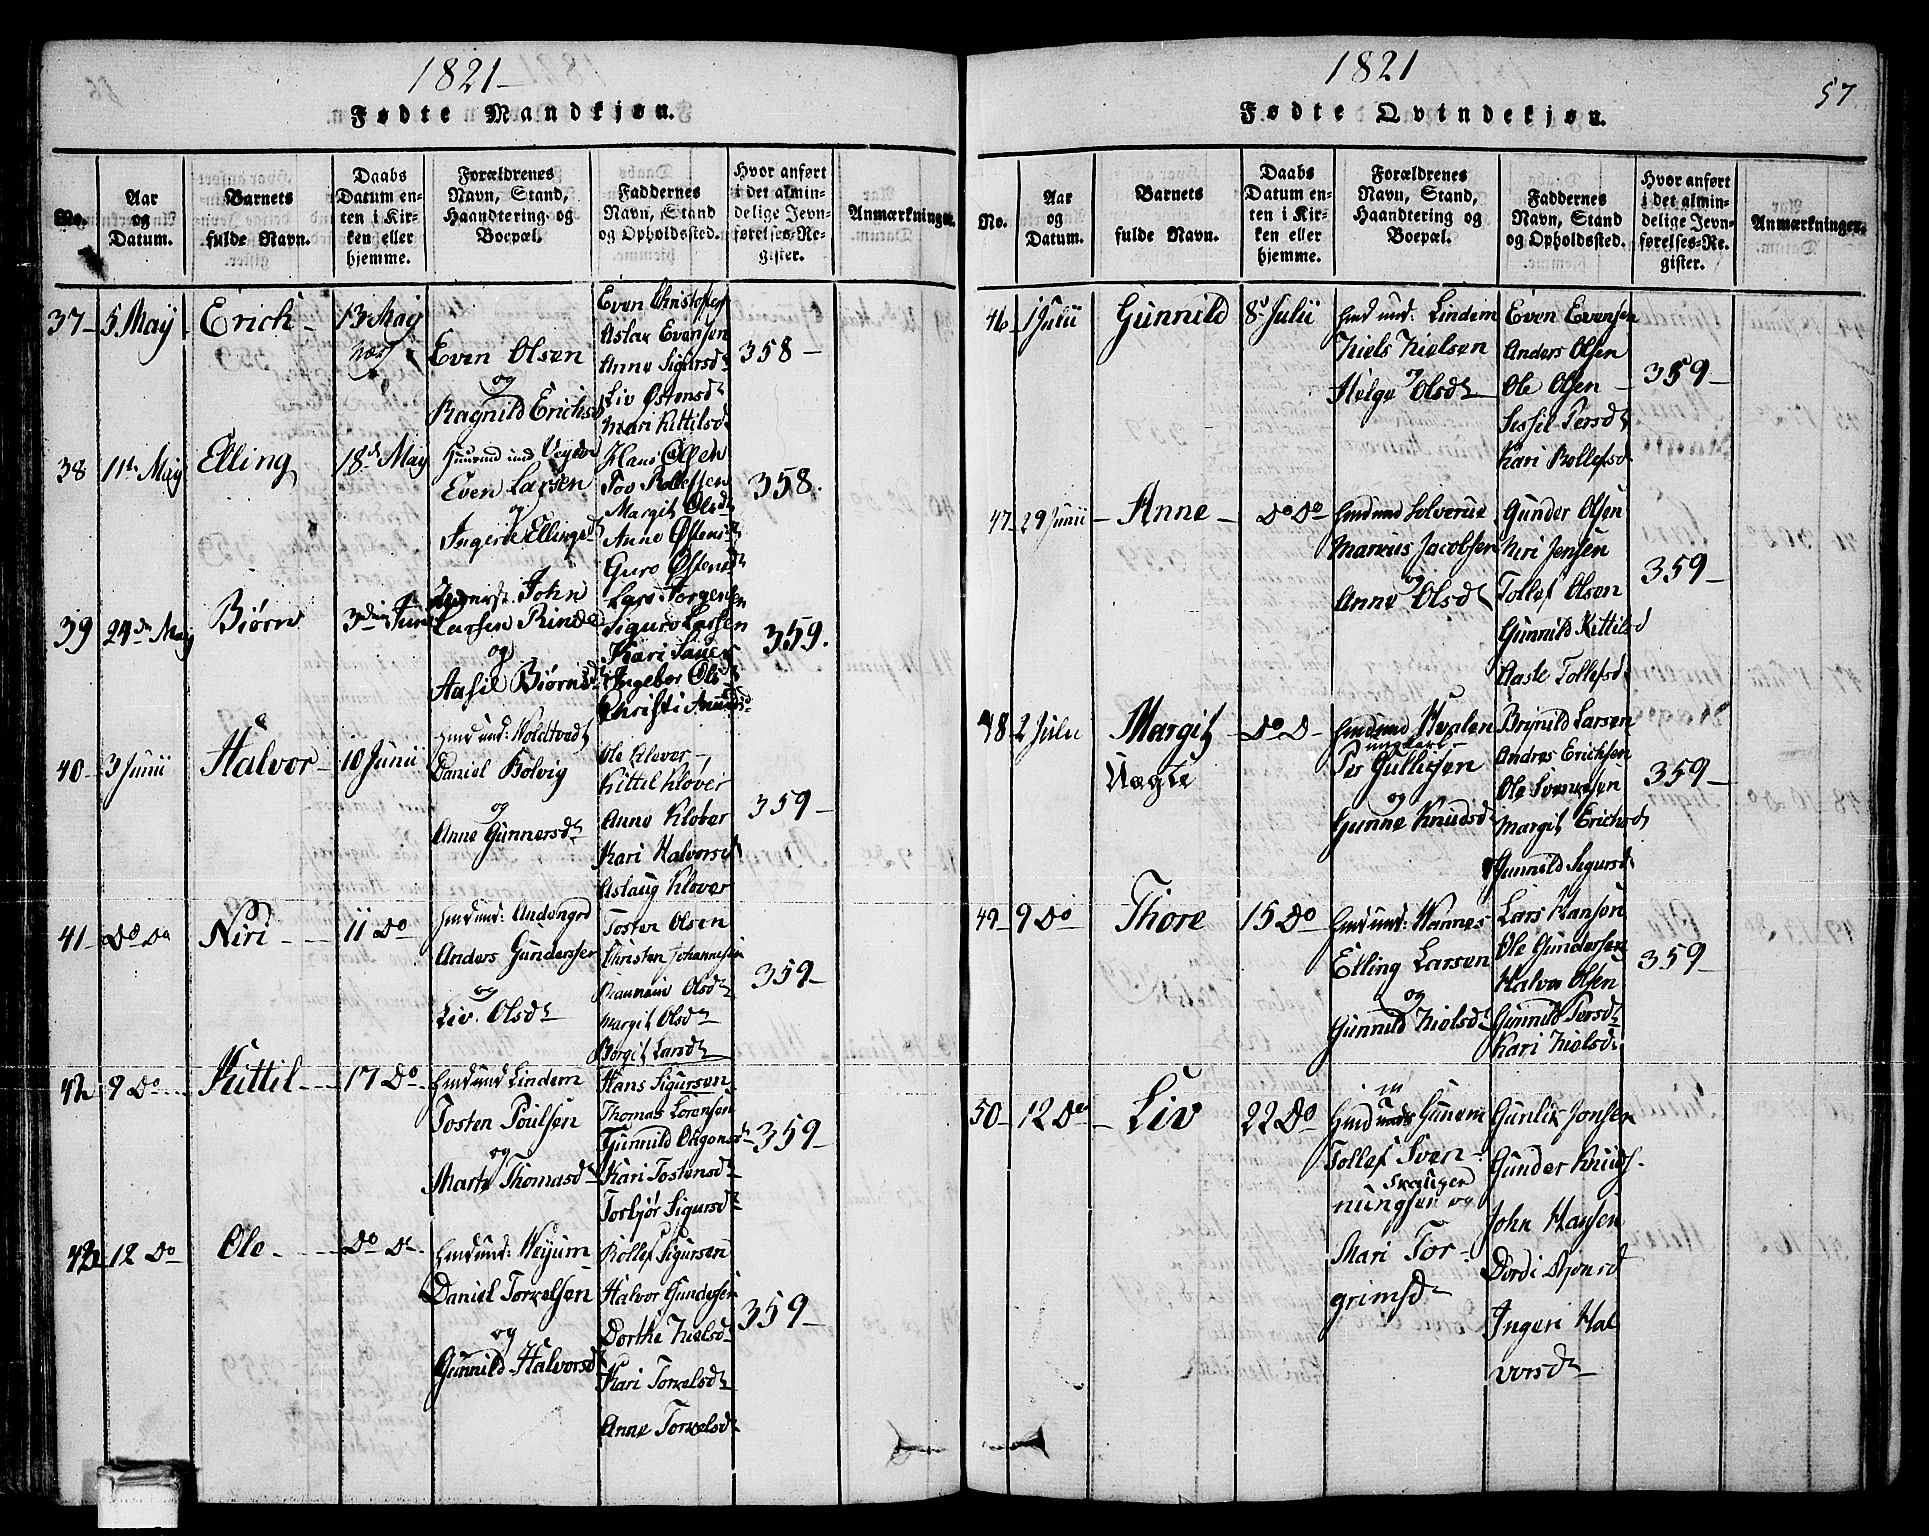 1821
Fødte Mandkjøn.
No.
Aar og Datum.
Barnets fulde Navn.
Daabs Datum enten i Kirken eller hjemme.
Forældrenes Navn, Stand, Haandtering og Boepæl.
Faddernes Navn, Stand og Opholdssted.
Hvor anført i det almindelige Jevnførelses-Register.
Anmærkninger.
37 5 May Erich 13 May
Even Olsen
og
Ragnild Erichsd
Aslak Evensen
Anne Sigursd
Liv Østensd
Mari Kittilsd
358
38 11 May Elling 18 May
Even Larsen
og
Ingerd Ellingsd
Hans Olsen
Tov Rollefsen
Margit Olsd
Anne Østensd
Guro Østensd
358.
39 24 May Biørn 3 Juni
John
Larsen Rinde
og
Aasil Biørnsd
Lars Jørgensen
Sigurd Larsen
Kari
Ingebor Olsd
Christi
359.
40 3 Junii Halvor 10 Junii
Gmd und: Holdtvedt
Daniel Bolvig
og
Anne Gunnersd
Ole Klover
Kittil Klover
Anne Klover
Kari Halvorsd
Aslaug Klover
359
41 Do Do Niri 11 Do
Gmd und:
Anders Gundersen
og
Liv Olsd
Tosten Olsen
Christen Johannesen
Olsd
Margit Olsd
Borgit Larsd
359
42 9 Do Kittil 17 Do
Gmd und Lindem
Tosten Poulsen
og
Marte Thomasd
Hans Sigursen
Thomas Lorensen
Gunnild
Kari Tostensd
Torbjør Sigursd
359
43 12 Do Ole Do Do
Gmd und: Heijum
Daniel Torkelsen
og
Gunnild Halvorsd
Rollef Sigursen
Halvor Gundersen
Dorthe Nielsd
Kari Torkelsd
Anne Torkelsd
359
1821
57
Fødte Qvindekjøn.
No.
Aar og Datum.
Barnets fulde Navn.
Daabs Datum enten i Kirken eller hjemme.
Forældrenes Navn, Stand, Haandtering og Boepæl.
Faddernes Navn, Stand og Opholdssted.
Hvor anført i det almindelige Jevnførelses-Register.
Anmærkninger.
46 1 Julii Gunnild 8 Julii
Gmd und: Lindem
Niels Nielsen
og
Helge Olsd
Even Evensen
Anders Olsen
Ole Olsen
Sissil Persd
Kari Rollefsd
359
47 29 Junii Anne Do Do
Gmd und Solverud
Markus Jacobsen
og
Anne Olsd
Gunder Olsen
Niri Jensen
Tollef Olsen
Gunnild Kittilsd
Aaste Tollefsd
359
48 2 Julii Margit Do D
Uægte
Per Gullichsen
og
Gunne Knudsd
Brynild Larsen
Andres Erichsen
Ole Svenkesen
Margit Erichsd
Gunnild Sigursd
359
49 9 Do Thore 15 Do
Gmd und: Hannes
Elling Larsen
og
Gunnild Nielsd
Lars Hansen
Ole Gundersen
Halvor Olsen
Gunnild Persd
Kari Nielsd
359
50 12 Do Liv 22 Do
Gmd und Gunem
Tollef Sven-
ningsen og
Mari Tor-
grimsd
Gunlik Jonsen
Gunder Knuds.
John Hansen
Dordi
Ingeri Hal
vorsd